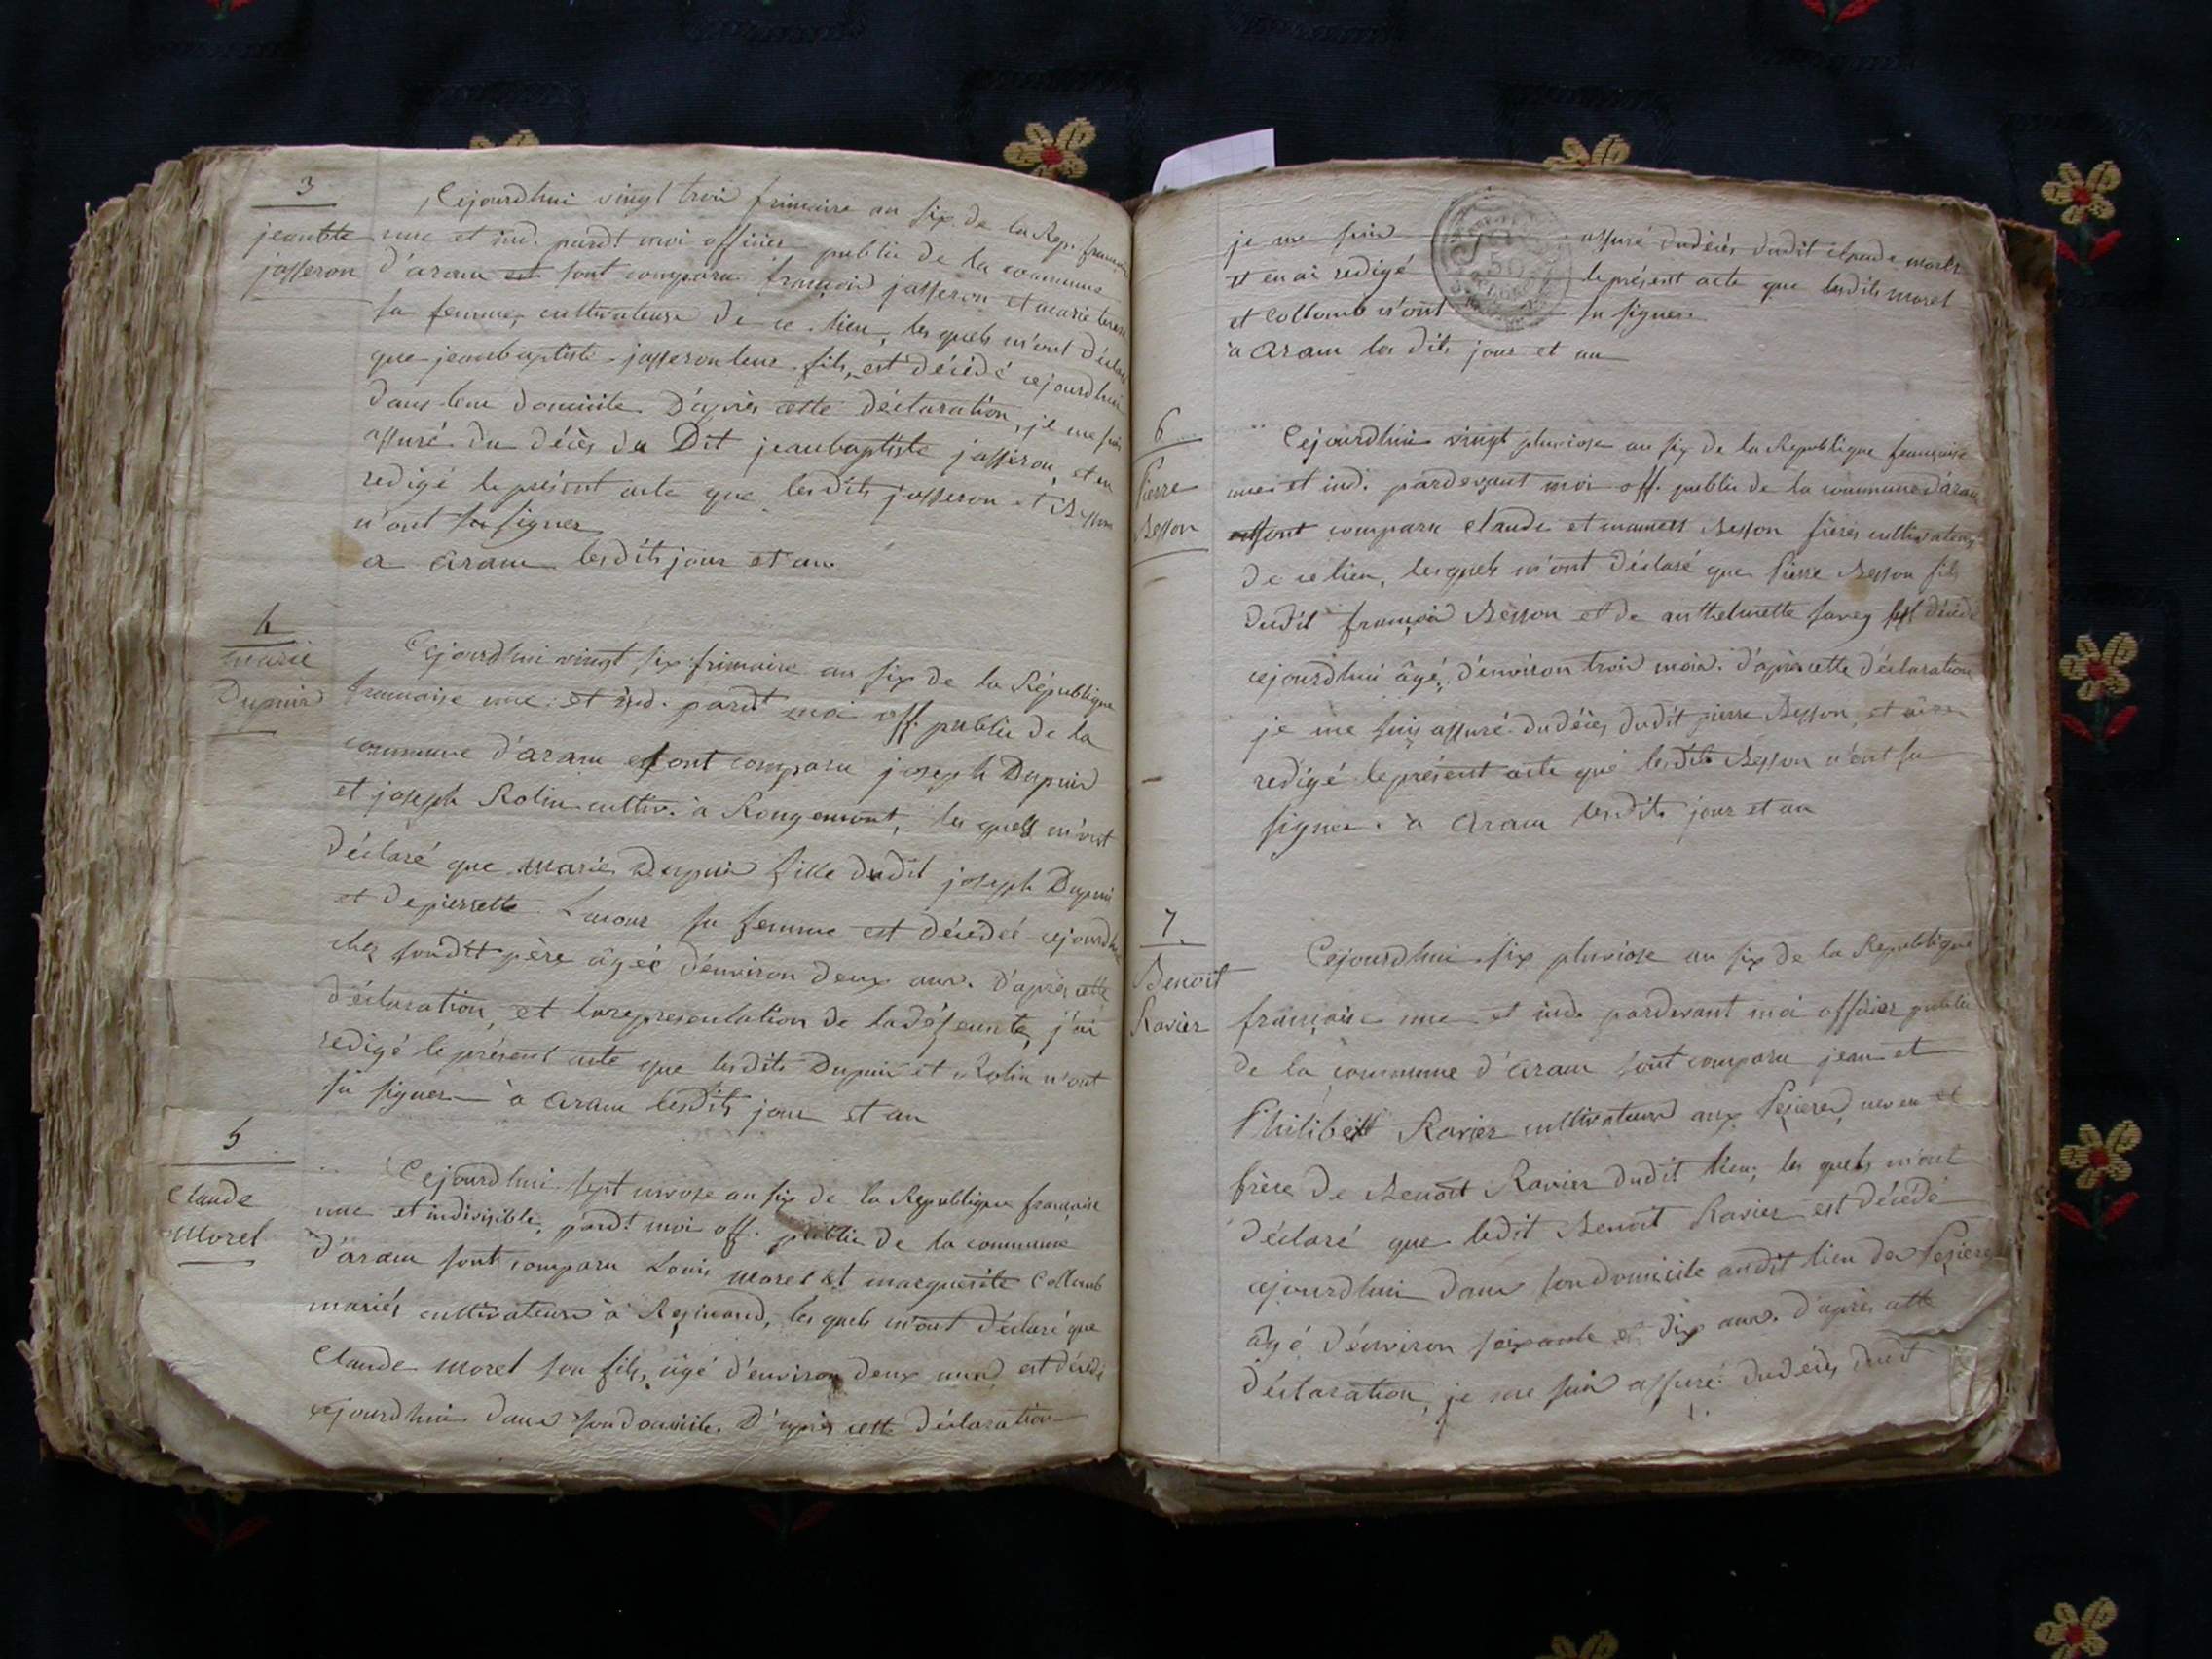 3
jeanbte
jasseron
Cejourdhui vingt trois frimaire an six de la Rep. francaise
une et ind. pardt moi officier public de la commune
d'aran est sont comparu françois jasseron et marie
sa femme, cultivateurs de ce lieu, les quels m'ont déclaré
que jeanbaptiste jasseron leur fils, est décédé cejourdhui
dans leur domicile. D'après cette déclaration, je me suis
assuré du décès du Dit jeanbaptiste jasseron, et en
redigé le présent acte que les dits jasseron et Besson
n'ont su signer
a aran lesdits jour et an
4
marie
Dupuis
Cejourdhui vingt six frimaire an six de la République
francaise une et ind. pardt moi off. public de la
commune d'aran sont comparu joseph Dupuis
et joseph Rolin cultiv. à Rougemont, les quels m'ont
déclaré que marie Dupuis fille dudit joseph Dupuis
et de pierrette sa femme est décédée cejourdhui
chez sondit père âgée d'environ deux ans. D'après cette
déclaration, et la representation de la défunte, j'ai
redigé le présent acte que lesdits Dupuis et Rolin n'ont
su signer — à aran lesdits jour et an
5
Claude
Morel
Cejourdhui sept nivose an six de la Republique française
une et indivisible, pardt moi off. public de la commune
d'aran sont comparu Louis Morel et marguerite Collomb
mariés cultivateurs à Resinand, les quels m'ont déclaré que
Claude Morel son fils, âgé d'environ deux ans est décédé
cejourdhui dans son domicile. D'après cette déclaration
je me suis assuré du décès dudit claude morel
et en ai redigé le présent acte que lesdits morel
et Collomb n'ont su signer
à aran les dits jour et an
6
Pierre
Besson
Cejourdhui vingt pluviose an six de la Republique française
une et ind. pardevant moi off. public de la commune d'aran
sont comparu Claude et Besson frères cultivateurs
de ce lieu, lesquels m'ont déclaré que Pierre Besson fils
dudit françois Besson et de anthelmette est décédé
cejourdhui âgé d'environ trois mois. d'après cette déclaration
je me suis assuré du décès dudit pierre Besson, et ai
redigé le présent acte que lesdits Besson n'ont su
signer. à aran lesdits jour et an
7
Benoit
Ravier
Cejourdhui six pluviose an six de la Republique
française une et ind. pardevant moi officier public
de la commune d'aran sont comparu jean et
Philibert Ravier cultivateurs aux neveu et
frère de Benoit Ravier dudit lieu, les quels m'ont
déclaré que ledit Benoit Ravier est décédé
cejourdhui dans son domicile audit lieu des
âgé d'environ soixante et dix ans. d'après cette
déclaration, je me suis assuré du décès dudit